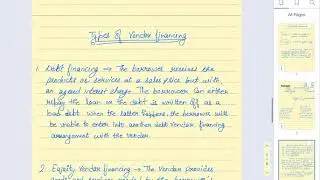 All Pages
Types of Vendor financing
1. Debt financing → The borrower receives the
products or services at a sales price but with
an agreed interest charge. The borrower can either
repay the loan or the debt is written off as a
bad debt. When the latter happens, the borrower will
be unable to enter into another debt vendor financing
arrangement with the vendor.
2. Equity Vendor financing → The Vendor provides
goods and services needed by the borrower's